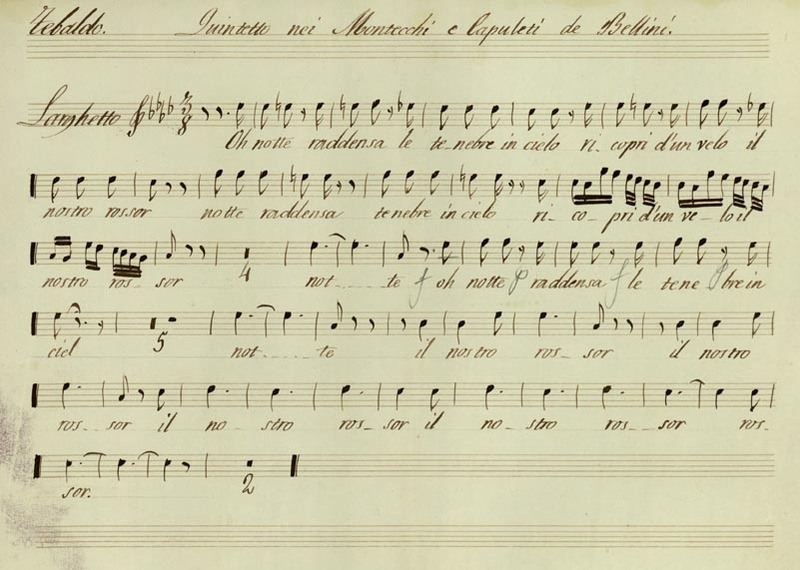 Tebaldo. Quintetto nei Montecchi e Capuleti de Bellini.
Larghetto 3/8
Oh notte raddensa le te-nebre in cielo ri-copri d'un velo il
nostro rossor notte raddensa tenebre in cielo ri-co-pri d'un ve-lo il
nostro ros-sor 4 not-te f oh notte p raddensa f le tene p bre in
ciel 5 not-te il nostro ros-sor il nostro
ros-sor il no-stro ros-sor il no-stro ros-sor ros-
sor. 2